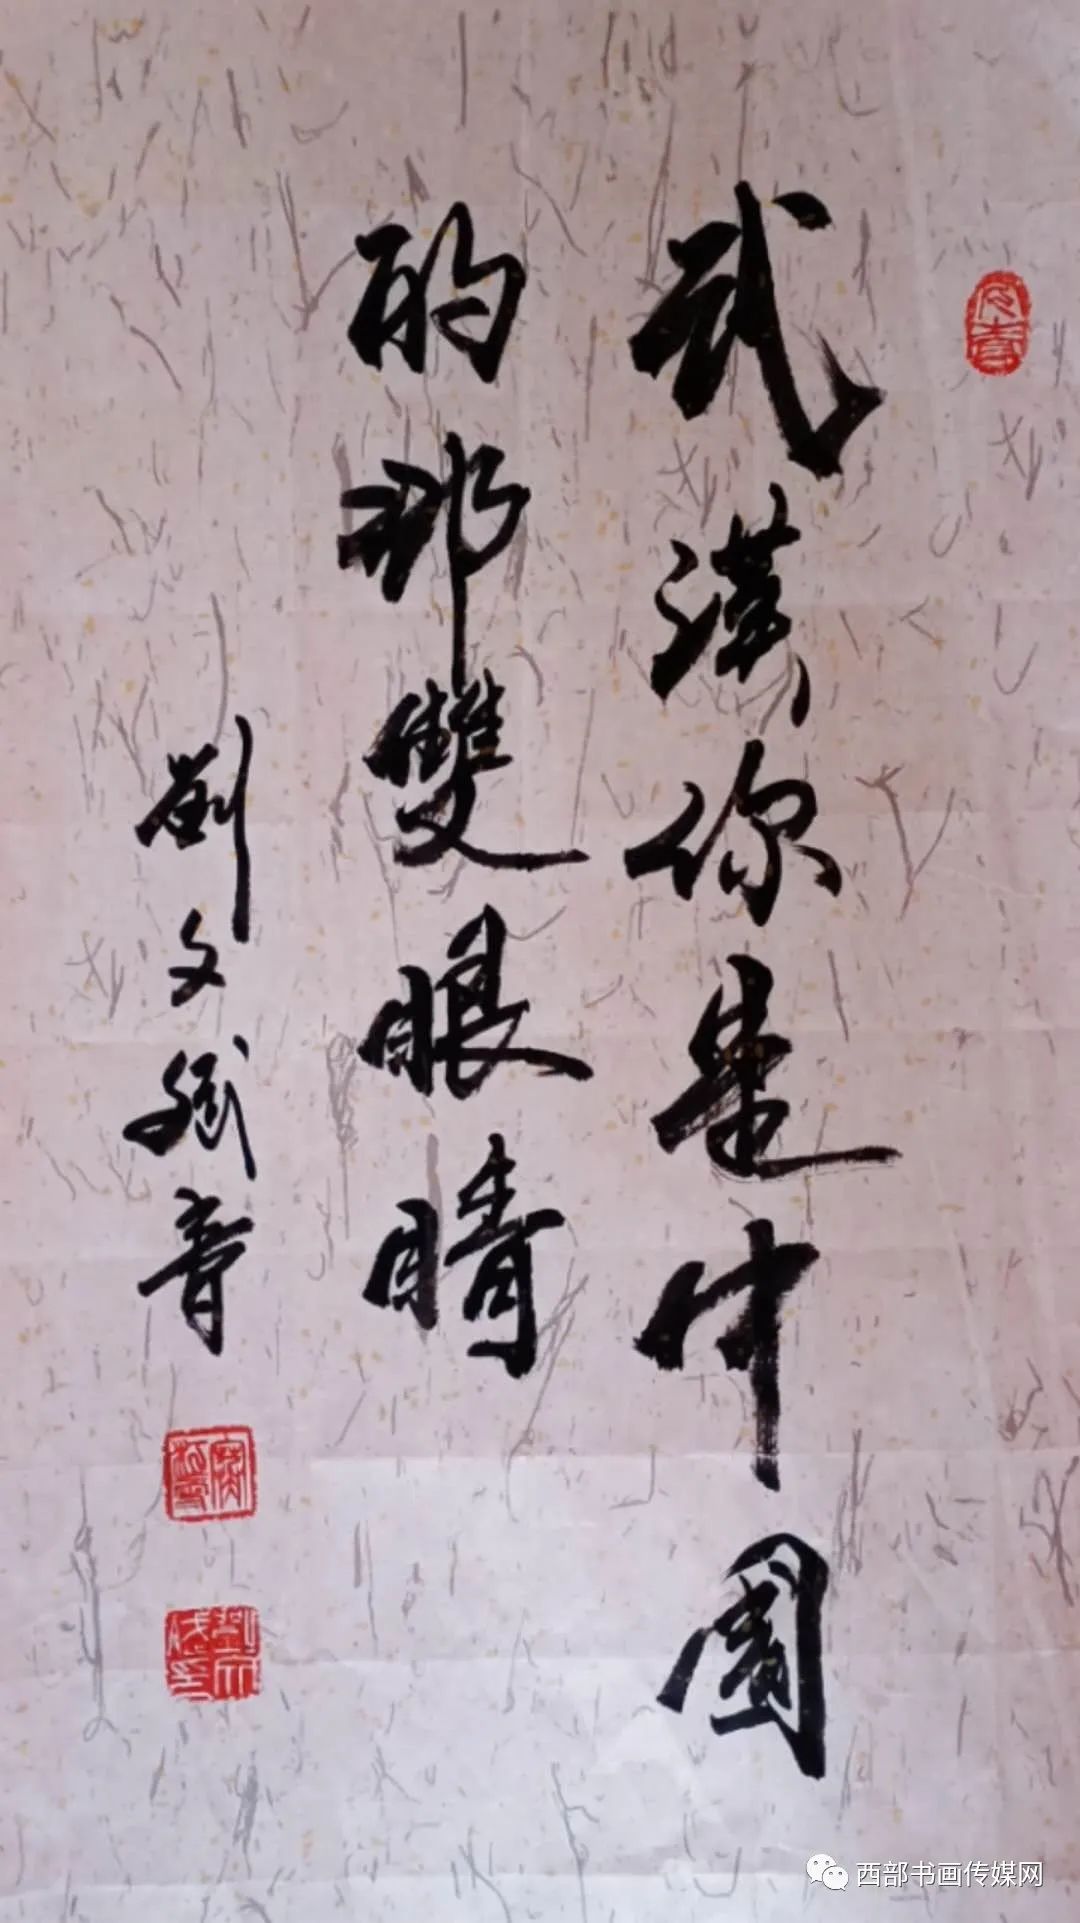 武漢你是中國
的那雙眼睛
劉文斌書
西部书画传媒网